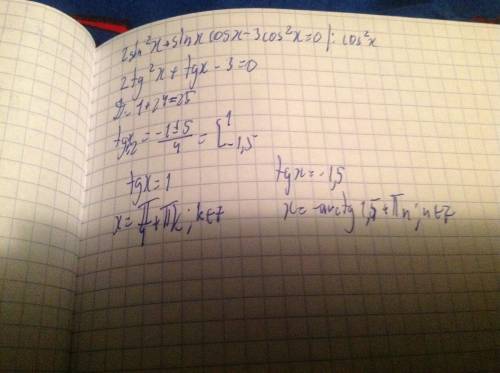 2sin²x+sinx cosx-3cos²x=0 |: cos²x
2tg²x+tgx-3=0
D=1+24=25
tgx₁,₂=(-1±5)/4=[1
-1,5
tgx=1
x=π/4+πk; k∈Z
tgx=-1,5
x=-arctg 1,5+πn; n∈Z